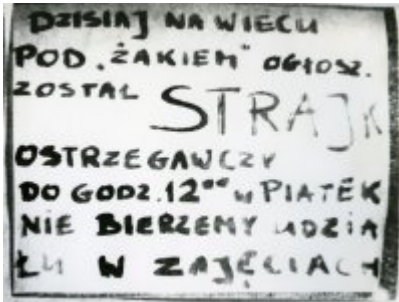 DZISIAJ NA WIECU
POD „ŻAKIEM" OGŁOSZ.
ZOSTAŁ STRAJK
OSTRZEGAWCZY
DO GODZ. 12⁰⁰ W PIATEK
NIE BIERZEMY UDZIA
ŁU W ZAJĘCIACH